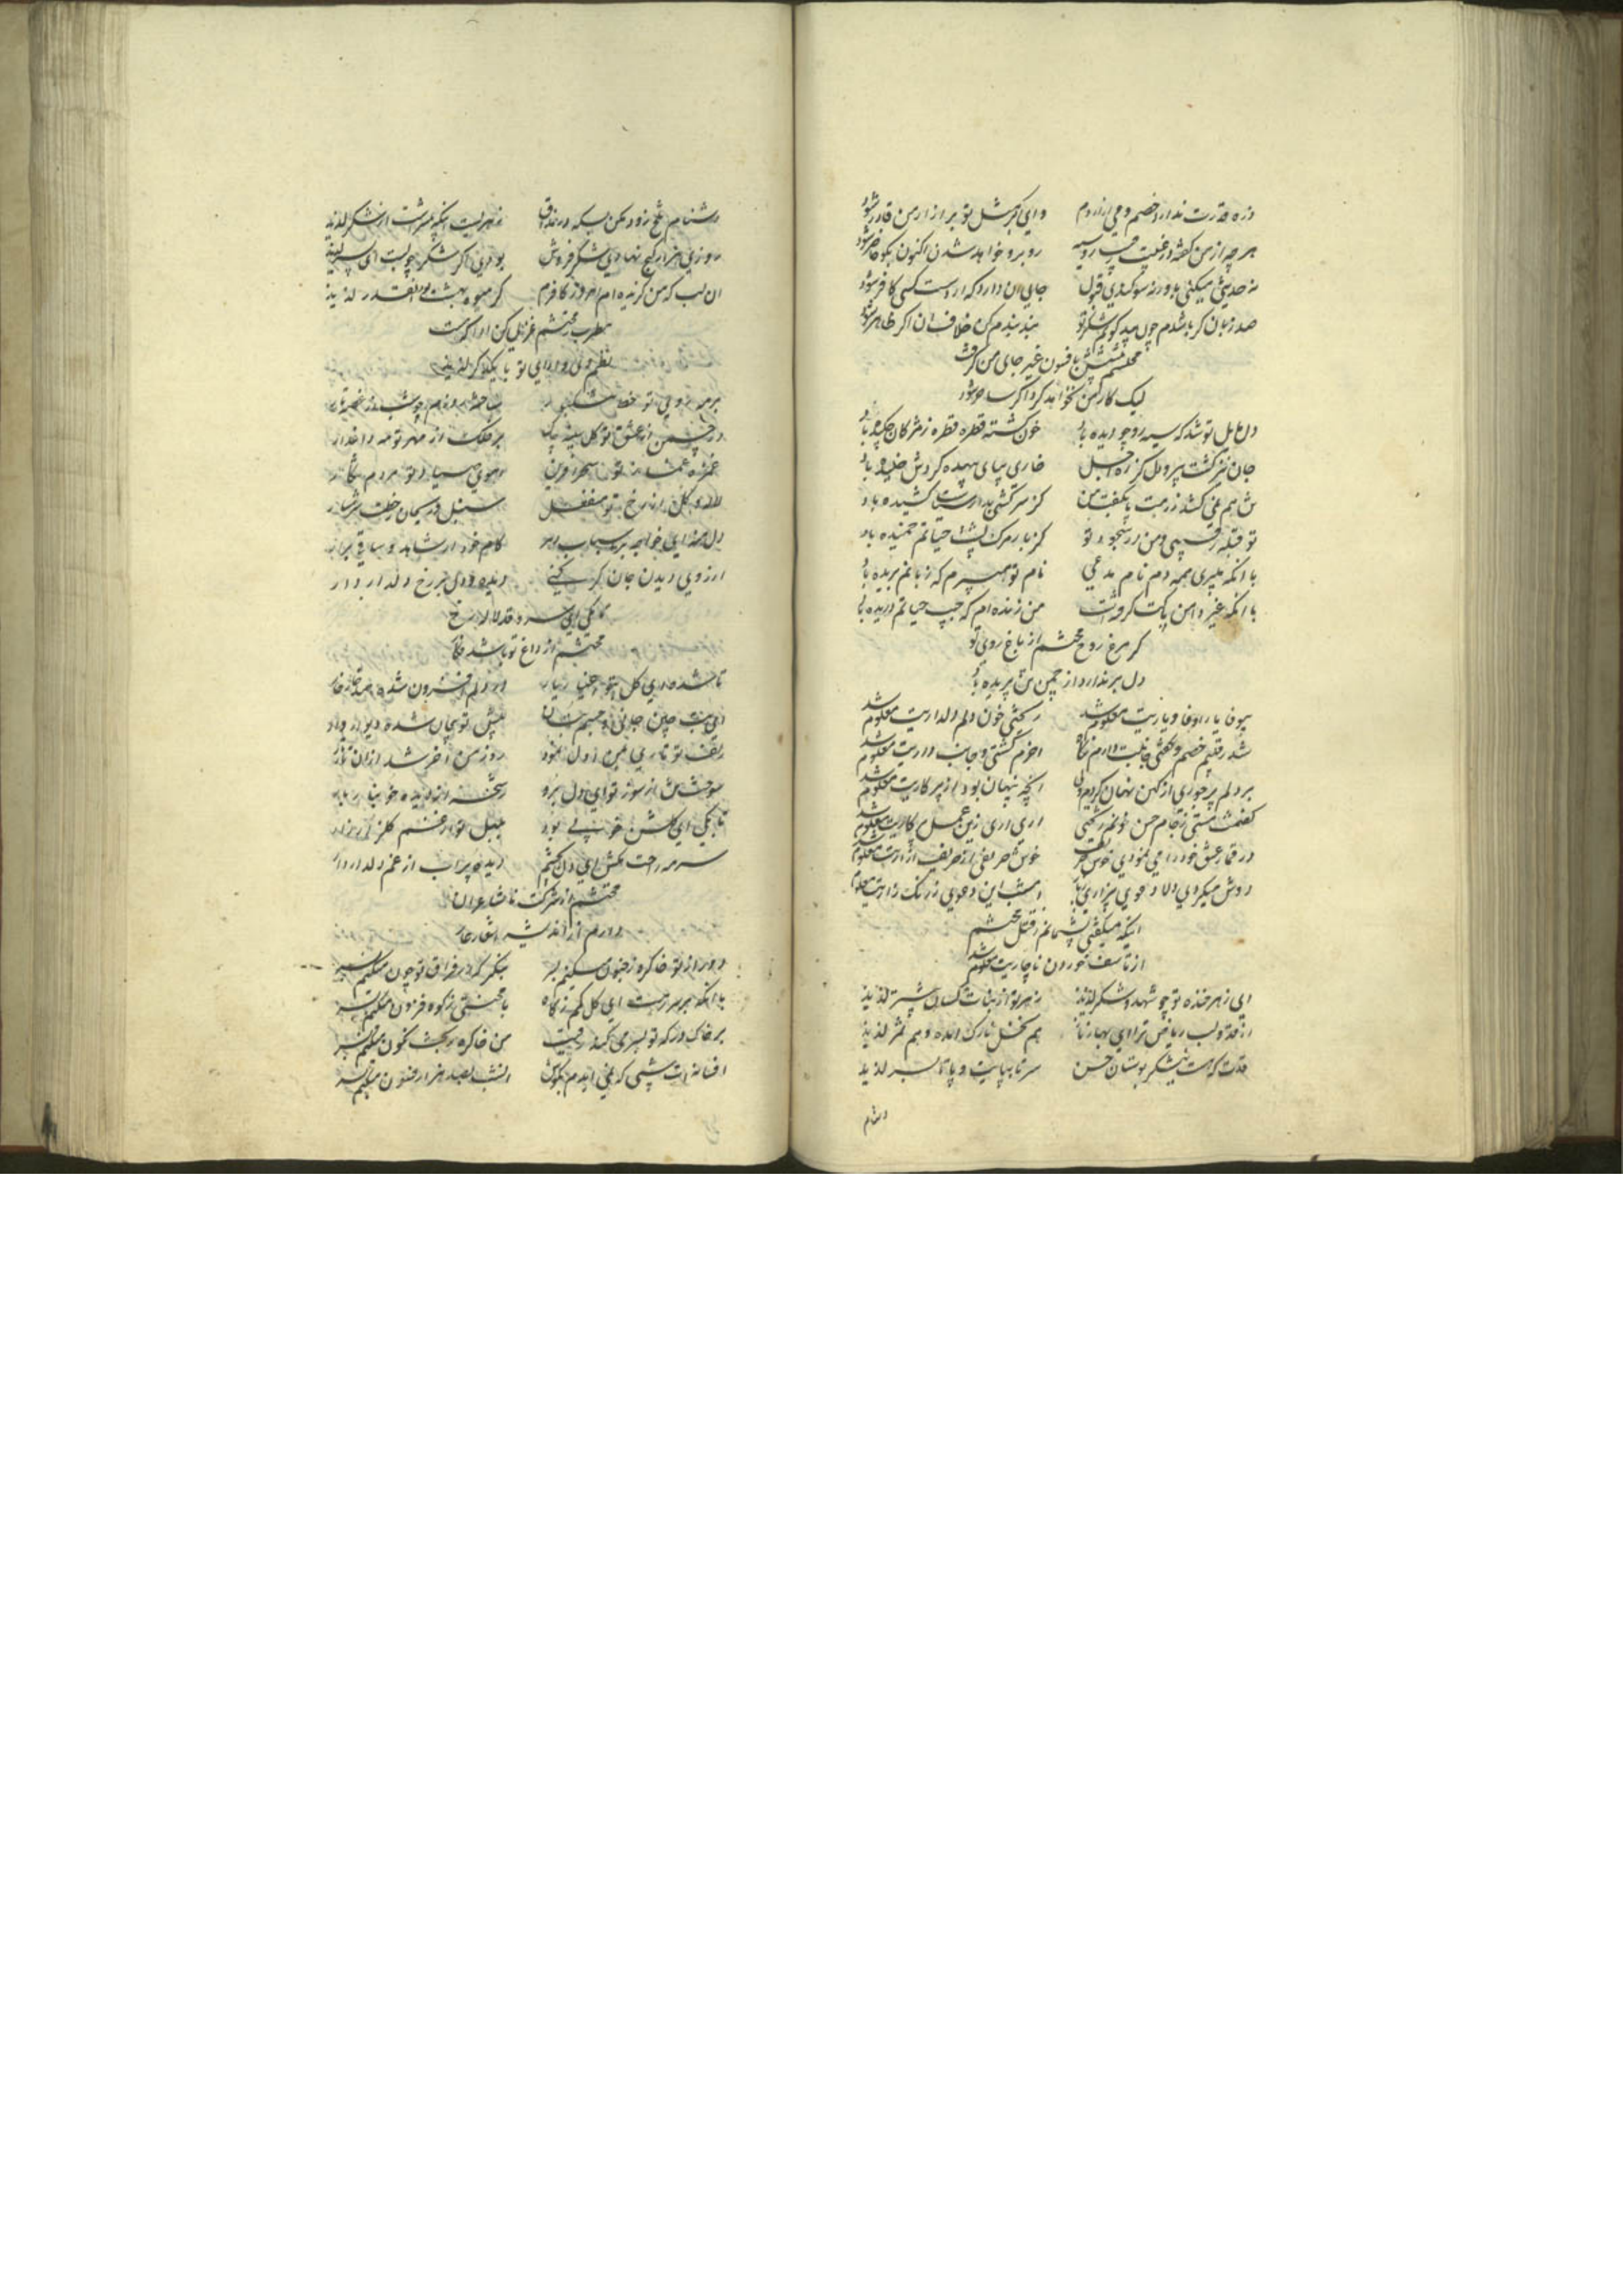 ذره قدرت ندارد خصم و می ازاردم وای کر مثل تو بر ازار من قادر شود
هر چه از من کفته در غیبت رقیب رو سیه روبرو خواهد شدن اکنون بکو حاضر شود
نه حدیثی میکنی باور نه سوکندی قبول جای ان دارد که از دست کسی کافر شود
صد زبان کر باشدم چون بید کویم شکر تو بند بندم کن خلاف ان اکر ظاهر شود
محتشم بافسون غیر جای من کرفت
لیک کار من نخواهد کرد اکر ساحر شود
دل مایل تو شد که سیه رو چو دیده باد خون کشته قطره قطره ز مژکان چکیده باد
جان نیز کشت پیرو دل کز ره اجل خاری بپای بیهده کردش خلیده باد
تن هم نمی کشد ز رهت پا بکفت من کز سرکشی بدار سیاست کشیده باد
تو قبله رقیبی و من در سجود تو کز بار مرک پشت حیاتم خمیده باد
با انکه میبری همه دم نام مدعی نام تو میبرم که زبانم بریده باد
با انکه غیر دامن پاکت کرفت من زنده ام که جیب حیاتم دریده باد
کر مرغ روح محتشم از باغ روی تو
دل بر ندارد از چمن تن پریده باد
بیوفا یارا وفا و یاریت معلوم شد ریختی خون دلم دلداریت معلوم شد
شد رقیبم خصم و کفتی جانبت دارم نکاه اخرم کشتی و جانب داریت معلوم شد
بر دلم پر جوری از کین نهان کردم ولی انچه پنهان بود از پر کاریت معلوم شد
کفتمت مستی ز جام حسن خونم ریختی اری اری زین عمل هشیاریت معلوم شد
در قمار عشق خود را می نمودی خوش حریف خوش حریفی از حریف ازاریت معلوم شد
دوش میکردی دلا دعوی بیزاری ز یار امشب این دعوی ز رنک زاریت معلوم شد
اینکه میکفتی پشیمانم ز قتل محتشم
از تاسف خوردن ناچاریت معلوم شد
ای زهر خنده تو چو شهد و شکر لذیذ زهر تو از نبات کسان بیشتر لذیذ
از قد و لب ریاض ترا ای بهار ناز هم نخل نازک امده و هم ثمر لذیذ
قدت که هست نیشکر بوستان حسن سر تا بپای و پا تا بسر لذیذ
دشنام
دشنام تلخ زود مکن بس که در مذاق زهریست اینکه هست از شکر لذیذ
روزی هزار کنج نهادی شکر فروش بودی اکر شکر چو لبت ای پسر لذیذ
ان لب که من کزیده ام امروز کافرم کر میوه بهشت بود اینقدر لذیذ
مطرب ز محتشم غزلی کن ادا که هست
نظم وی و ادای تو با یکدکر لذیذ
بر مه روی تو خط مشکبار ساخته روزم چو شب
در چمن از عشق تو کل سینه چاک بر فلک از مهر تو مه داغدار
غمزه غماز تو سحر افرین اهوی صیاد تو مردم شکار
لاله و کل از رخ تو منفعل سنبل و ریحان ز خطت شرمسار
دل منه ای خواجه بر اسباب دهر کام خود از شاهد و ساقی برار
ارزوی دیدن جان کر کنی دیده دل بر رخ دلدار دار
کافکی ای سرو قد لاله رخ
محتشم از داغ تو باشد فکار
تا شده ای کل بتو اغیار یار در دلم افزون شده صد خار خار
ای بت چین چون جانی و جسم بتان پیش تو بیجان شده دیوار وار
زلف تو تاری بمن از دل نمود روز من اخر شد ازان تار تار
سوخت تن از سوز تو ای دل برو ریخته از دیده خونبار بار
تا بکی ای کلشن خوبی بود بلبل تو در غم کلزار زار
سرمه راحت مکش ای دل بچشم دیده پر اب از غم دلدار دار
محتشم از شرکت ناشاعران
دارم از اندیشه اشعار عار
دور از تو خاک ره ز جنون میکنم بسر بنکر که در فراق تو چون میکنم بسر
با انکه بر سر زنیت ای کل کم ز کاه با محنتی ز کوه فزون میکنم بسر
بر خاک در که تو بسر می کند رقیب من خاک ره ز بخت نکون میکنم بسر
افسانه ات شبی که نمی ایدم بکوش انشب بصد هزار فسون میکنم بسر